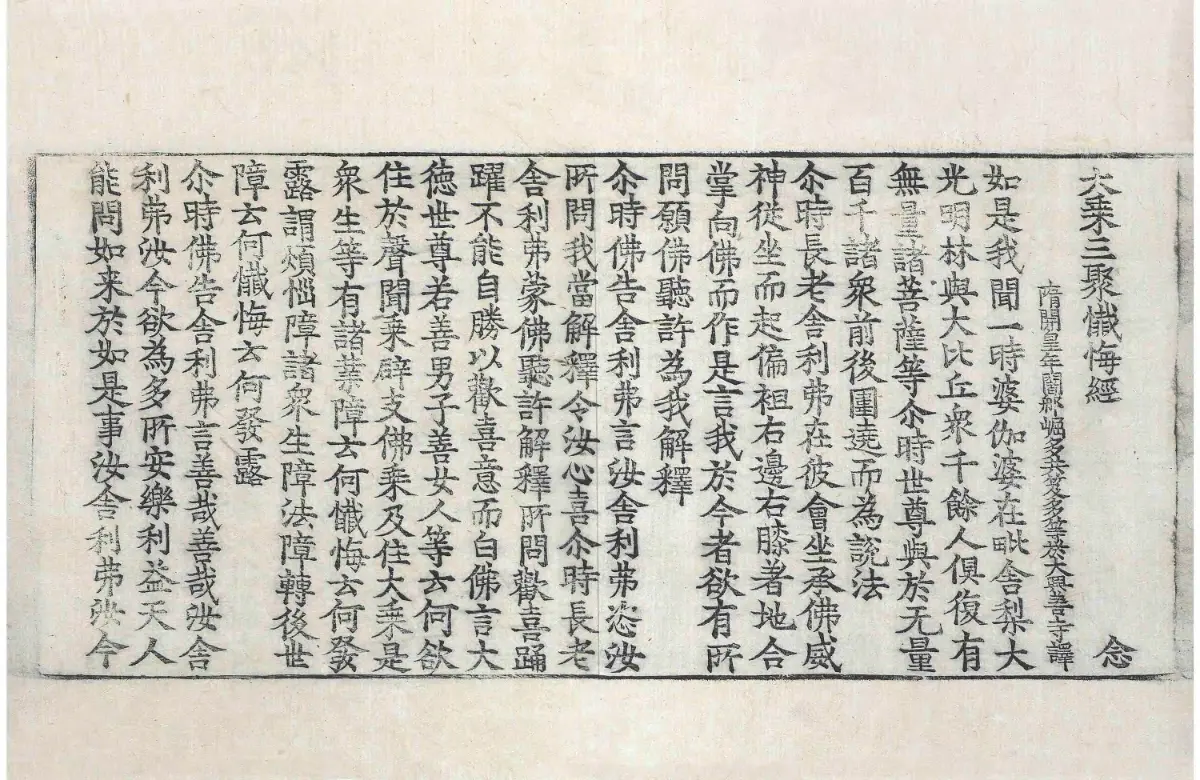 大乗三聚懺悔經 念
隋開皇年闍那崛多共笈多等於大興善寺譯
如是我聞一時婆伽婆在毗舍梨大
光明林與大比丘衆千餘人俱復有
無量諸菩薩等尒時世尊與於无量
百千諸衆前後圍遶而為說法
尒時長老舍利弗在彼會坐承佛威
神從坐而起偏袒右邊右膝著地合
掌向佛而作是言我於今者欲有所
問願佛聽許為我解釋
尒時佛告舍利弗言汝舍利弗恣汝
所問我當解釋令汝心喜尒時長老
舍利弗蒙佛聽許解釋所問歡喜踊
躍不能自勝以歡喜意而白佛言大
徳世尊若善男子善女人等云何欲
住於聲聞乗辟支佛乗及住大乗是
衆生等有諸業障云何懺悔云何發
露謂煩惱障諸衆生障法障轉後世
障云何懺悔云何發露
尒時佛告舍利弗言善哉善哉汝舍
利弗汝今欲為多所安樂利益天人
能問如来於如是事汝舍利弗汝今